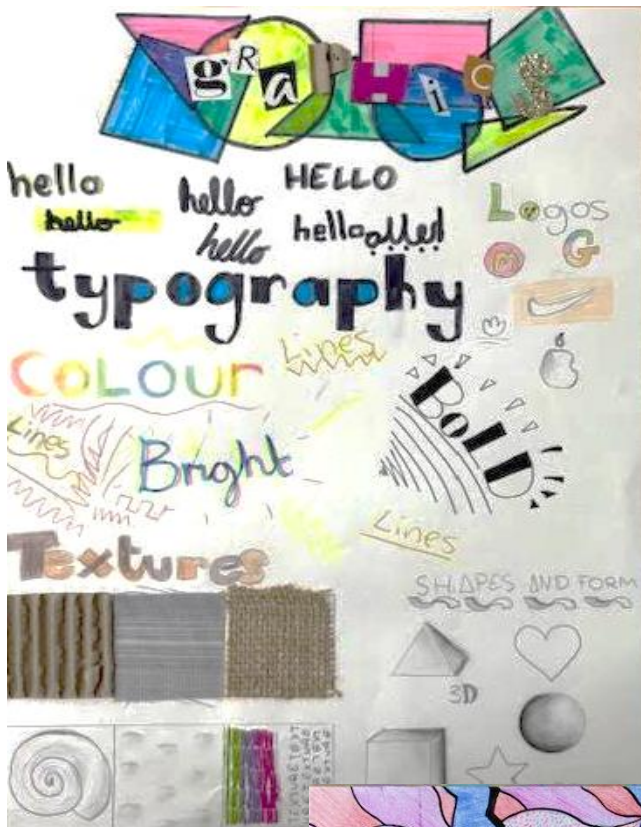 gRaPHiCS
hello
hello
hello
hello
HELLO
hello
Logos
G
typography
COLOUr
Lines
Lines
BOLD
Bright
Lines
Textures
SHAPES AND FORM
3D